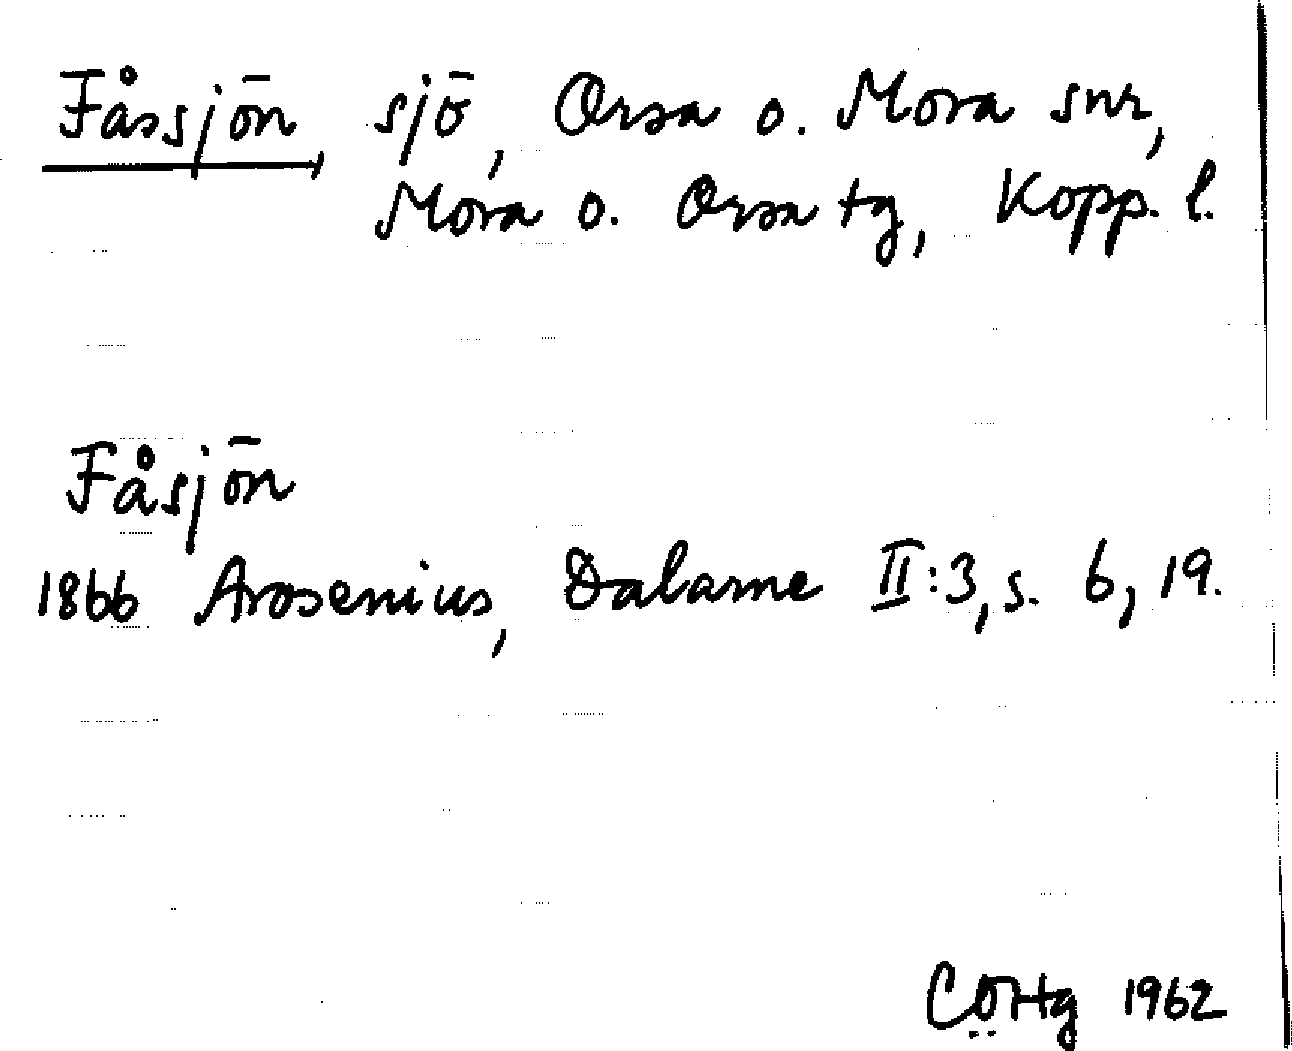 Fåssjön, sjö, Orsa o. Mora snr,
Mora o. Orsa tg, Kopp. l.
Fåsjön
1866 Arosenius, Dalarne II:3, s. 6, 19.
1962